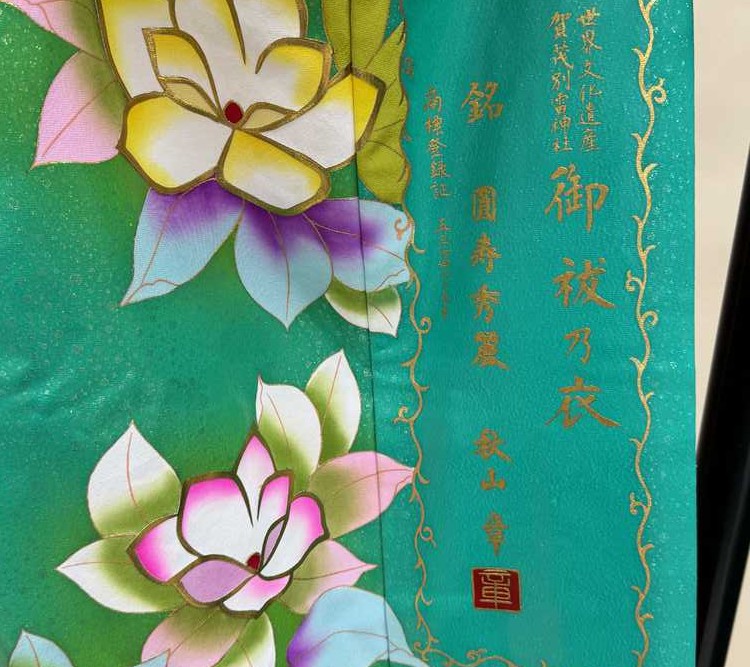 世界文化遺産
賀茂別雷神社
御祓乃衣
銘 圓寿秀麗 秋山 章
商標登録証
章